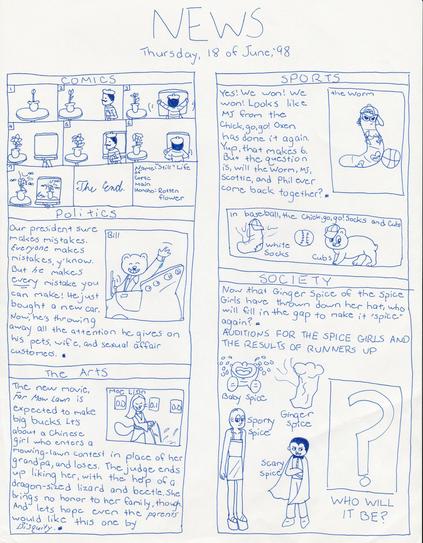 NEWS
Thursday, 18 of June, '98
COMICS
1
2
3
4
5
6
7
The End
Name: "Still" Life
Main
Rotten
flower
Politics
Our president sure
makes mistakes.
Everyone makes
mistakes, y'know.
But he makes
every mistake you
can make! He just
bought a new car.
Now, he's throwing
away all the attention he gives on
his pets, wife, and sexual affair
customer.
Bill
The Arts
The new movie,
for Mow Lawn is
expected to make
big bucks. It's
about a Chinese
girl who enters a
mowing-lawn contest in place of her
grandpa, and loses. The judge ends
up liking her, with the help of a
dragon-sized lizard and beetle. She
brings no honor to her family, though.
And lets hope even the parents
would like this one by
Disquity.
Mow Lawn
0.0
0.0
0.1
SPORTS
Yes! We won! We
won! Looks like
MJ from the
Chick,go,go! Oxen
has done it again.
Yup, that makes 6.
But the question
is, will the Worm, MJ,
Scottie, and Phil ever
come back together?
the Worm
In baseball, the Chick,go,go! Socks and Cubs
White
Socks
Cubs
SOCIETY
Now that Ginger Spice of the Spice
Girls have thrown down her hat, who
will fill in the gap to make it 'spice'
again?
AUDITIONS FOR THE SPICE GIRLS AND
THE RESULTS OF RUNNERS UP
Baby Spice
Ginger
Spice
Sporty
Spice
Scary
Spice
?
WHO WILL
IT BE?